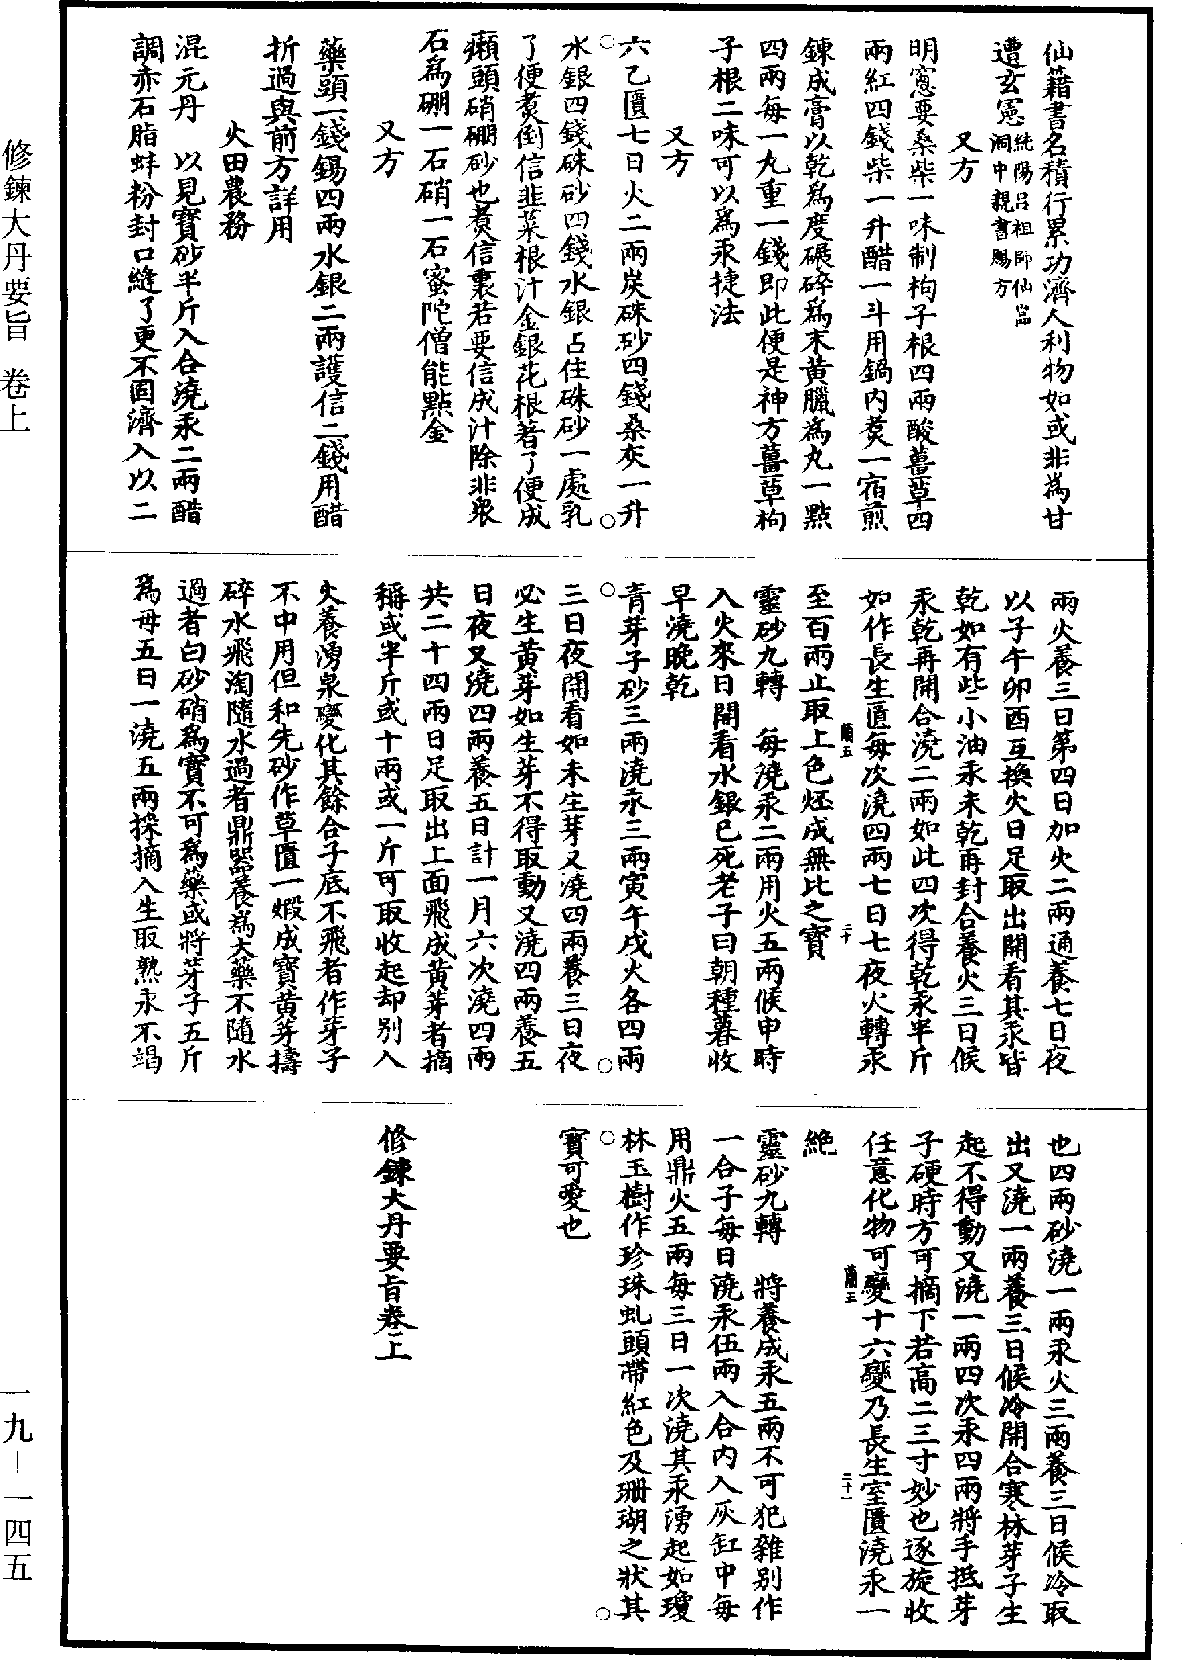 仙籍書名積行累功濟人利物如或非為甘
遭玄憲純陽呂祖師仙
洞中親書賜方
又方
明窓要桑柴一味制枸子根四兩酸薑草四
兩紅四錢柴一升醋一斗用鍋內煑一宿煎
鍊成膏以乾為度碾碎為末黃臘為丸一點
四兩每一丸重一錢即此便是神方薑草枸
子根二味可以為汞捷法
又方
六乙匱七日火二兩炭硃砂四錢桑灰一升
○ ○
水銀四錢硃砂四錢水銀占住硃砂一處乳
了便煑倒信韭菜根汁金銀花根著了便成
癩頭硝硼砂也煑信裹若要信成汁除非衆
石為硼一石硝一石蜜陀僧能點金
又方
藥頭一錢錫四兩水銀二兩護信二錢用醋
折過與前方詳用
火田農務
混元丹 以見寶砂半斤入合澆汞二兩醋
調赤石脂蚌粉封口縫了更不固濟入以二
兩火養三日第四日加火二兩通養七日夜
以子午卯酉互換火日足取出開看其汞皆
乾如有些小油汞未乾再封合養火三日候
汞乾再開合澆二兩如此四次得乾汞半斤
如作長生匱每次澆四兩七日七夜火轉汞
蘭五 二十
至百兩止取上色坯成無比之寶
靈砂九轉 每澆汞二兩用火五兩候申時
入火來日開看水銀已死老子曰朝種暮收
早澆晚乾
青芽子砂三兩澆汞三兩寅午戌火各四兩
○ ○
三日夜開看如未生芽又澆四兩養三日夜
必生黃芽如生芽不得取動又澆四兩養五
日夜又澆四兩養五日計一月六次澆四兩
共二十四兩日足取出上面飛成黃芽者摘
稱或半斤或十兩或一斤可取收起却別入
火養湧泉變化其餘合子底不飛者作芽子
不中用但和先砂作草匱一煆成寶黃芽擣
碎水飛淘隨水過者鼎器養為大藥不隨水
過者白砂硝為寶不可為藥或將芽子五斤
為母五日一澆五兩採摘入生取熟永不竭
也四兩砂澆一兩汞火三兩養三日候冷取
出又澆一兩養三日候冷開合寒林芽子生
起不得動又澆一兩四次汞四兩將手抵芽
子硬時方可摘下若高二三寸妙也逐旋收
任意化物可變十六變乃長生室匱澆汞一
蘭五 二十一
絕
靈砂九轉 將養成汞五兩不可犯雜別作
一合子每日澆汞伍兩入合內入灰缸中每
用鼎火五兩每三日一次澆其汞湧起如瓊
林玉樹作珍珠虬頭帶紅色及珊瑚之狀其
○ ○
寶可愛也
修鍊大丹要旨卷上
修鍊大丹要旨 卷上
一九－一四五